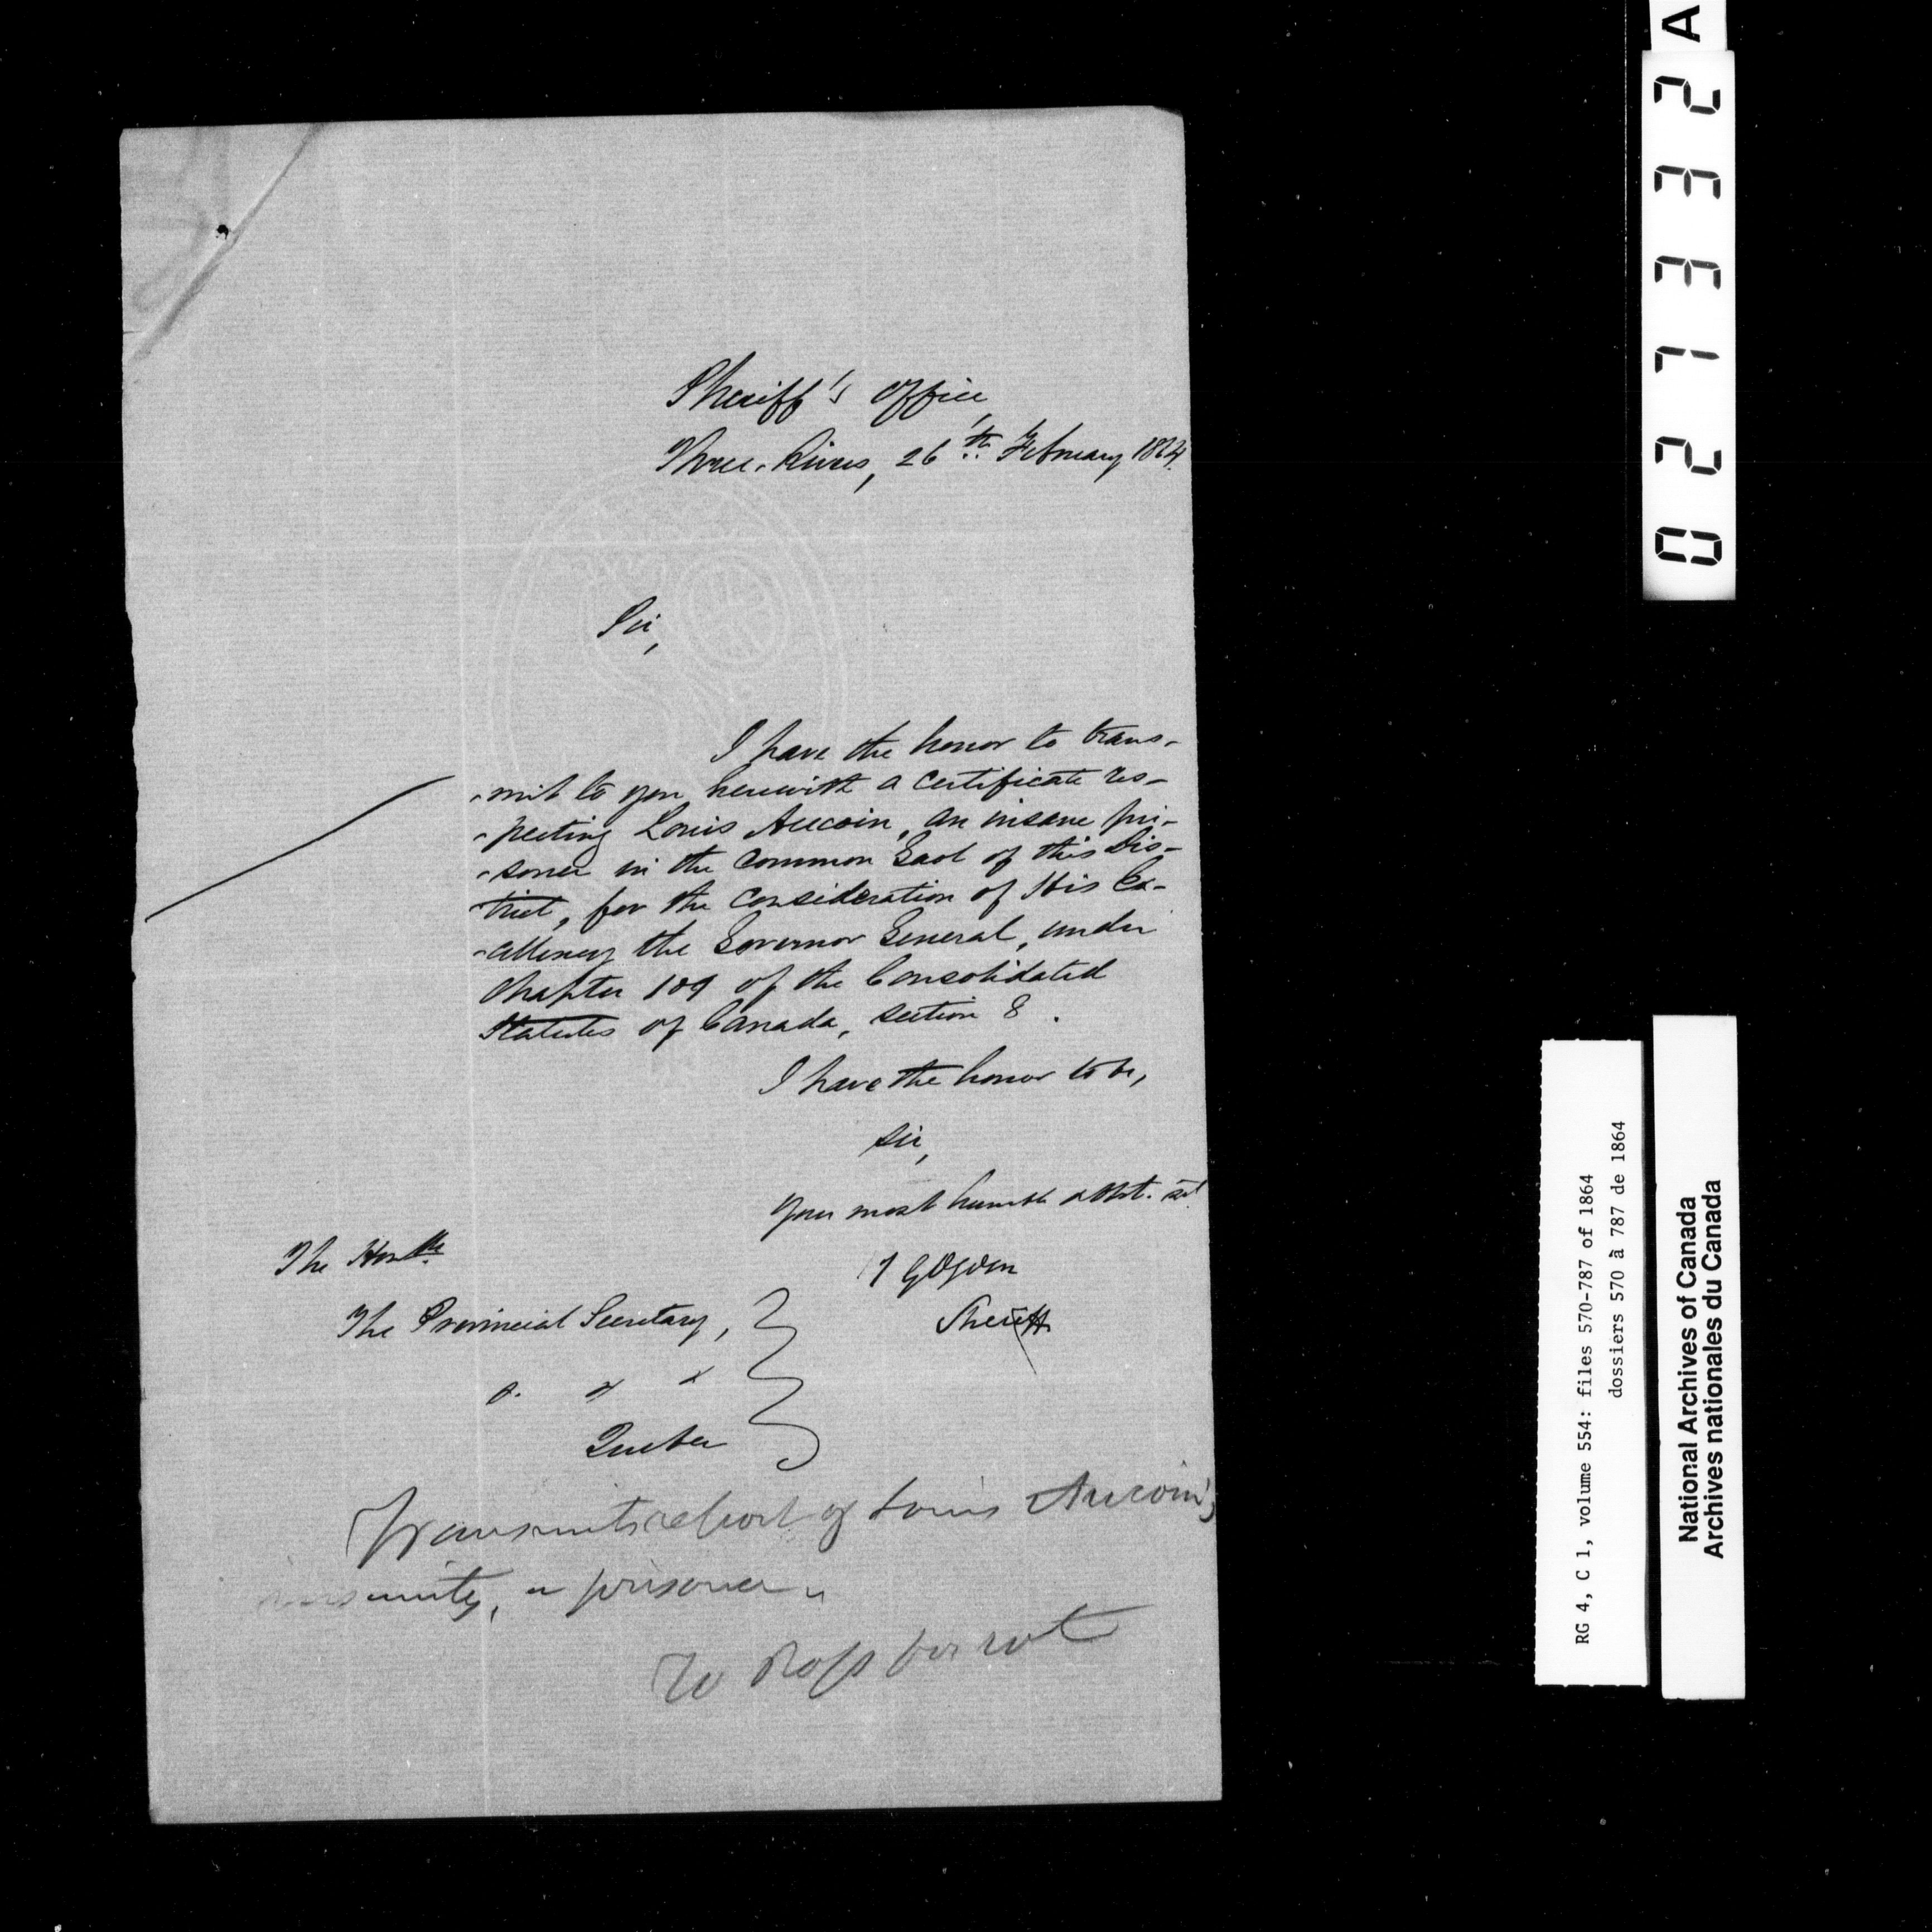 Sheriff's Office
Three-Rivers, 26th February 1864.
Sir,
I have the honor to trans-
-mit to you herewith a certificate res-
-pecting Louis Aucoin, an insane pri-
-soner in the Common Gaol of this Dis-
-trict, for the consideration of His Ex-
-cellency the Governor General, under
chapter 109 of the Consolidated
Statutes of Canada, section 8.
I have the honor to be,
Sir,
your most humble & obt. st.
I G Ogden
Sheriff
The Honble.
The Provincial Secretary,
&. & &
Quebec
Transmits report of Louis Aucoin's
insanity, a prisoner.
To
A
027332
RG 4, C 1, volume 554: files 570-787 of 1864
dossiers 570 à 787 de 1864
National Archives of Canada
Archives nationales du Canada